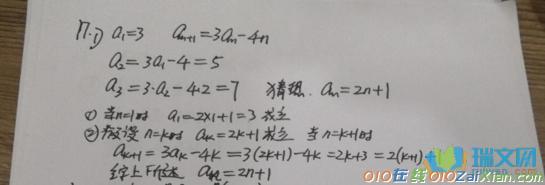 17.(1) a₁=3 aₙ₊₁=3aₙ-4n
a₂=3a₁-4=5
a₃=3·a₂-4·2=7 猜想. aₙ=2n+1
① 当n=1时 a₁=2×1+1=3 成立
②假设 n=k时 aₖ=2k+1成立 当n=k+1时
aₖ₊₁=3aₖ-4k=3(2k+1)-4k=2k+3=2(k+1)+
综上所述 aₙ=2n+1
瑞文网
010在线010Zaixian.com